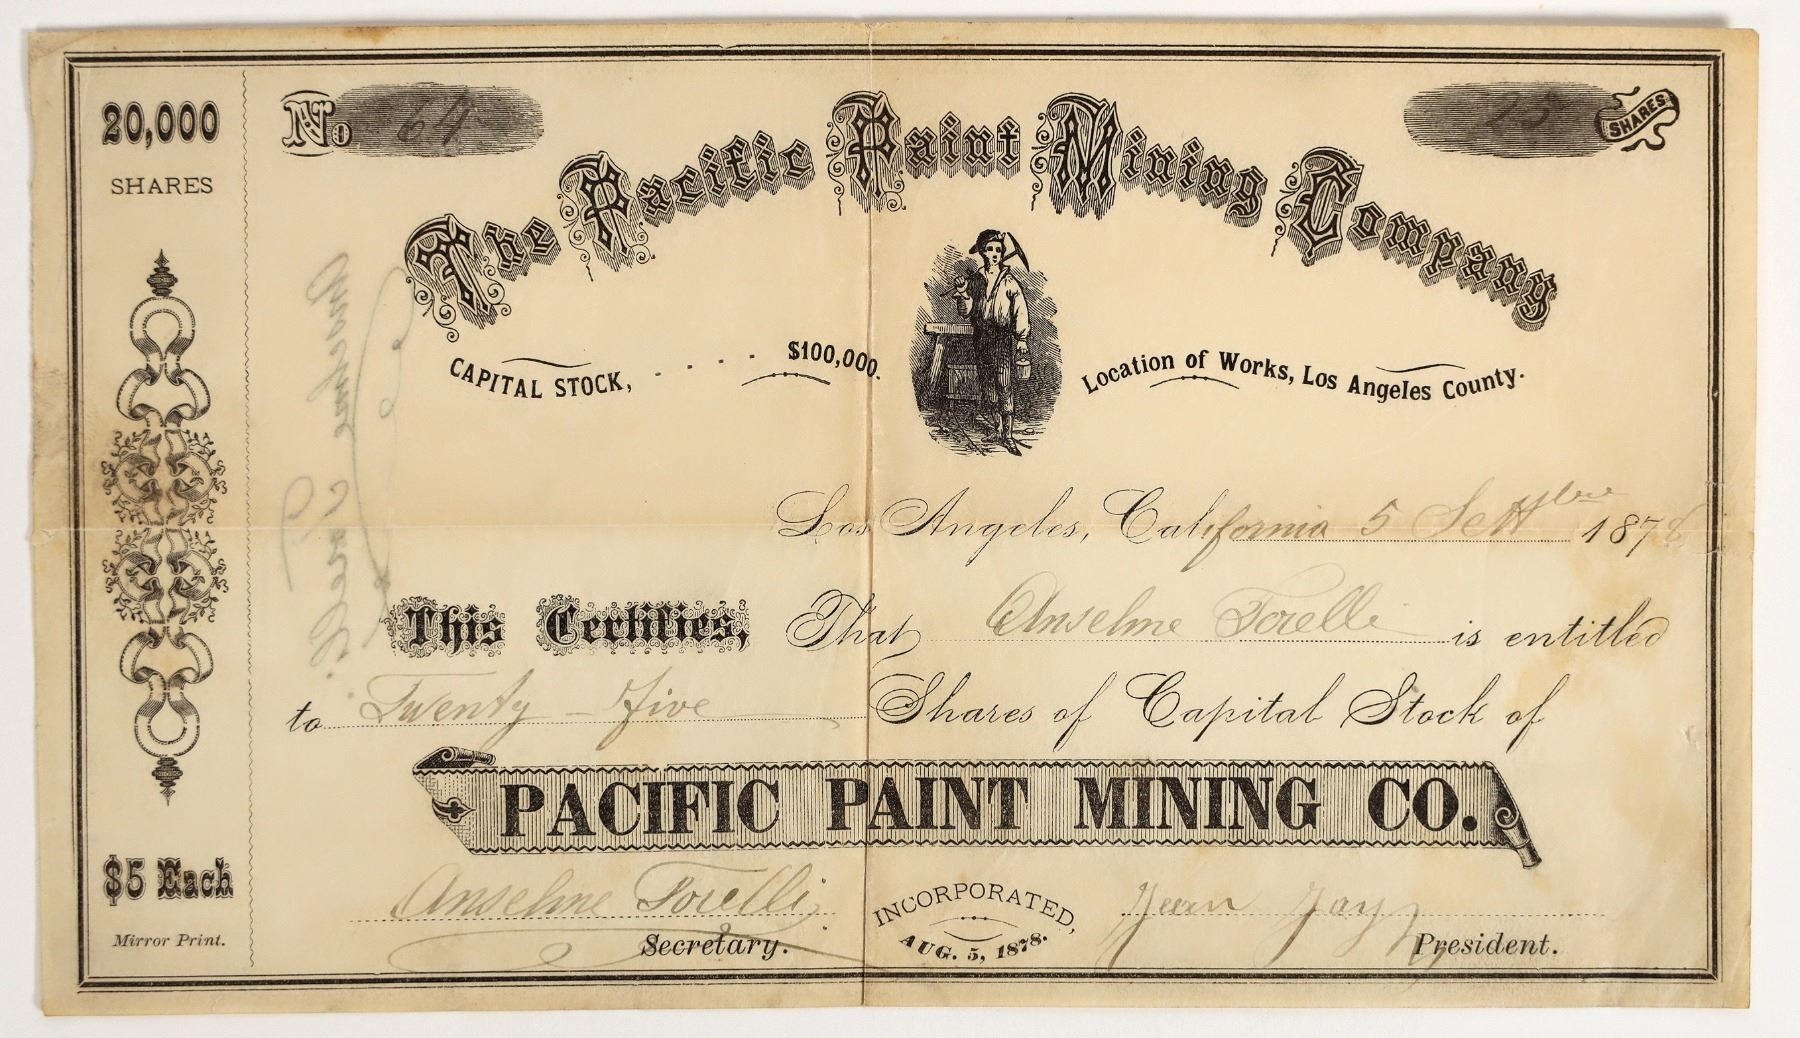 20,000
SHARES
$5 Each
Mirror Print.
No 64
25 SHARES
The Pacific Paint Mining Company
CAPITAL STOCK, . . . . $100,000.
Location of Works, Los Angeles County.
Los Angeles, California 5 Settbre 1878
This Certifies, That Anselme Torelli is entitled
to Twenty-five Shares of Capital Stock of
PACIFIC PAINT MINING CO.
Anselme Torelli
Secretary.
INCORPORATED,
AUG. 5, 1878.
President.